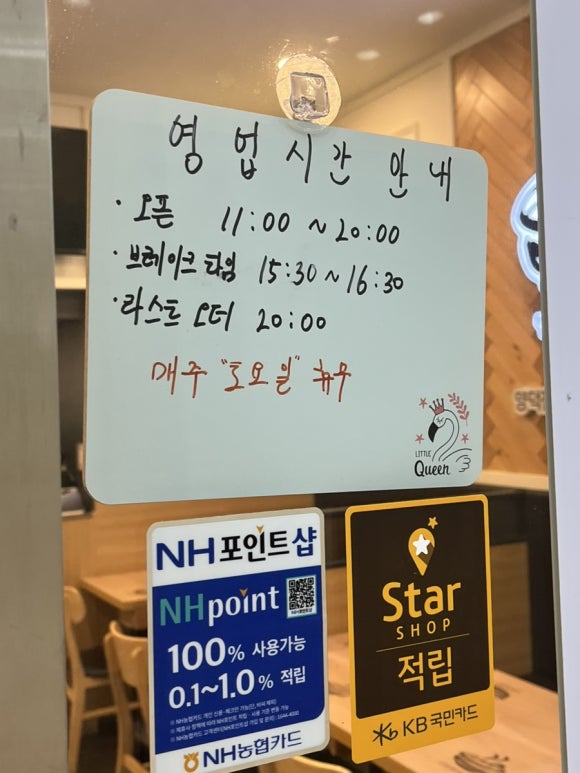 영업시간 안내
· 오픈 11:00 ~ 20:00
· 브레이크 타임 15:30 ~ 16:30
· 라스트 오더 20:00
매주 "토요일" 휴무
LITTLE
Queen
NH포인트샵
NHpoint
100% 사용가능
0.1~1.0% 적립
※ NH농협카드 개인 신용·체크만 가능(단, 비씨 제외)
NH농협카드
Star
SHOP
적립
KB국민카드